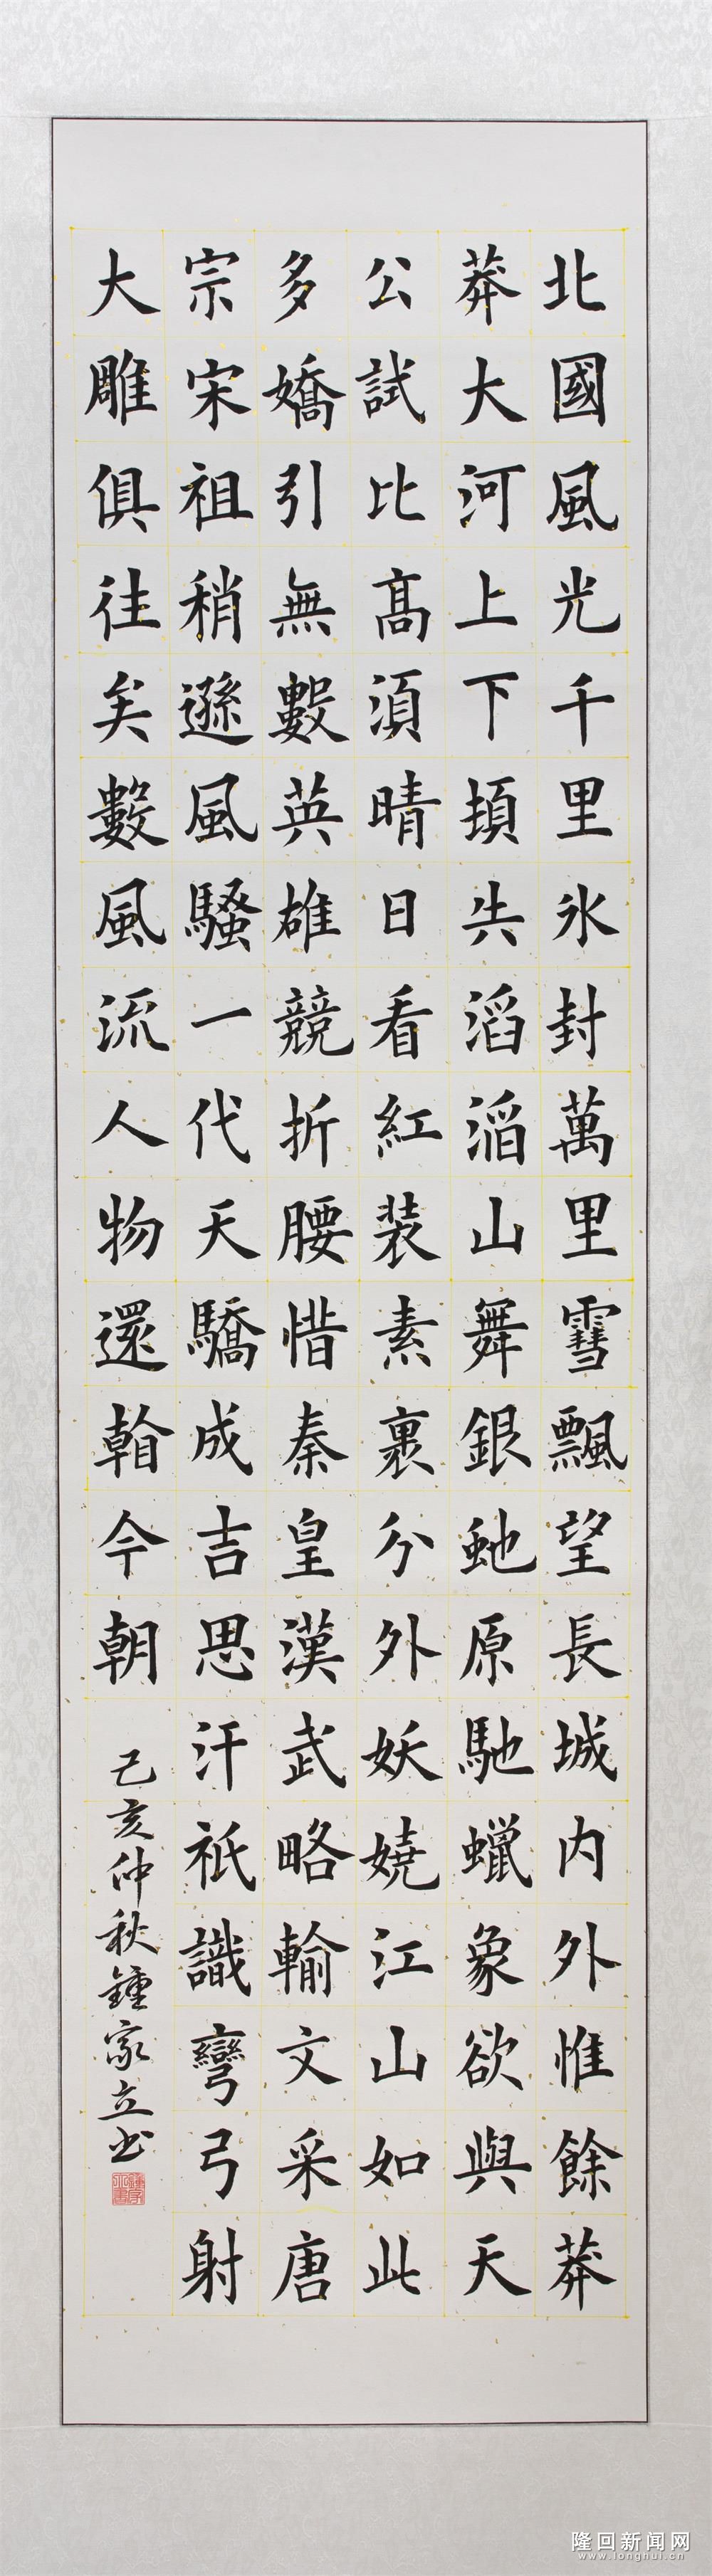 北國風光千里氷封萬里雪飄望長城内外惟餘莽
莽大河上下頓失滔滔山舞銀虵原馳蠟象欲與天
公試比髙須晴日看紅裝素裹分外妖嬈江山如此
多嬌引無數英雄競折腰惜秦皇漢武略輸文采唐
宗宋祖稍遜風騷一代天驕成吉思汗祇識彎弓射
大雕俱往矣數風流人物還看今朝
己亥仲秋鍾家立书
隆回新闻网
www.longhui.cn